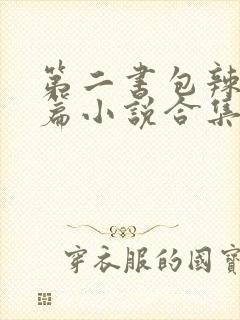 第二书包辣
篇小说合集
穿衣服的國寶